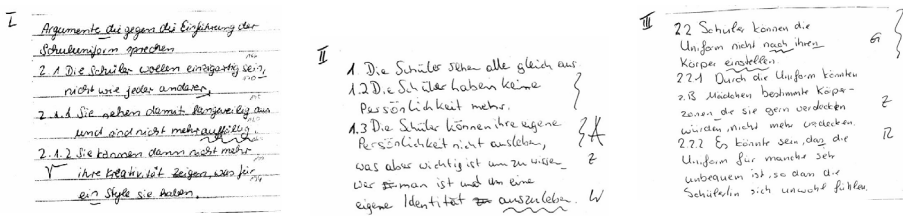 I
Argumente die gegen die Einführung der
Schuluniform sprechen
2.1 Die Schüler wollen einzigartig sein,
nicht wie jeder anderer,
2.1.1 Sie sehen damit langweilig aus
und sind nicht mehr auffällig.
2.1.2 Sie können dann nicht mehr
ihre Kreativität zeigen, was für
ein Style sie haben.
II
1. Die Schüler sehen alle gleich aus.
1.2 Die Schüler haben keine
Persönlichkeit mehr.
1.3 Die Schüler können ihre eigene
Persönlichkeit nicht ausleben,
was aber wichtig ist um zu wissen
Z
wer man ist und um eine
eigene Identität auszuleben.
W
III
2.2 Schüler können die
Uniform nicht nach ihren
G
Körper einstellen.
2.2.1 Durch die Uniform könnten
z.B Mädchen bestimmte Körper-
zonen die sie gern verdecken
Z
würden nicht mehr verdecken.
2.2.2 Es könnte sein, das die
R
Uniform für manche sehr
unbequem ist, so dan die
Schülerlin sich unwohl fühlen.